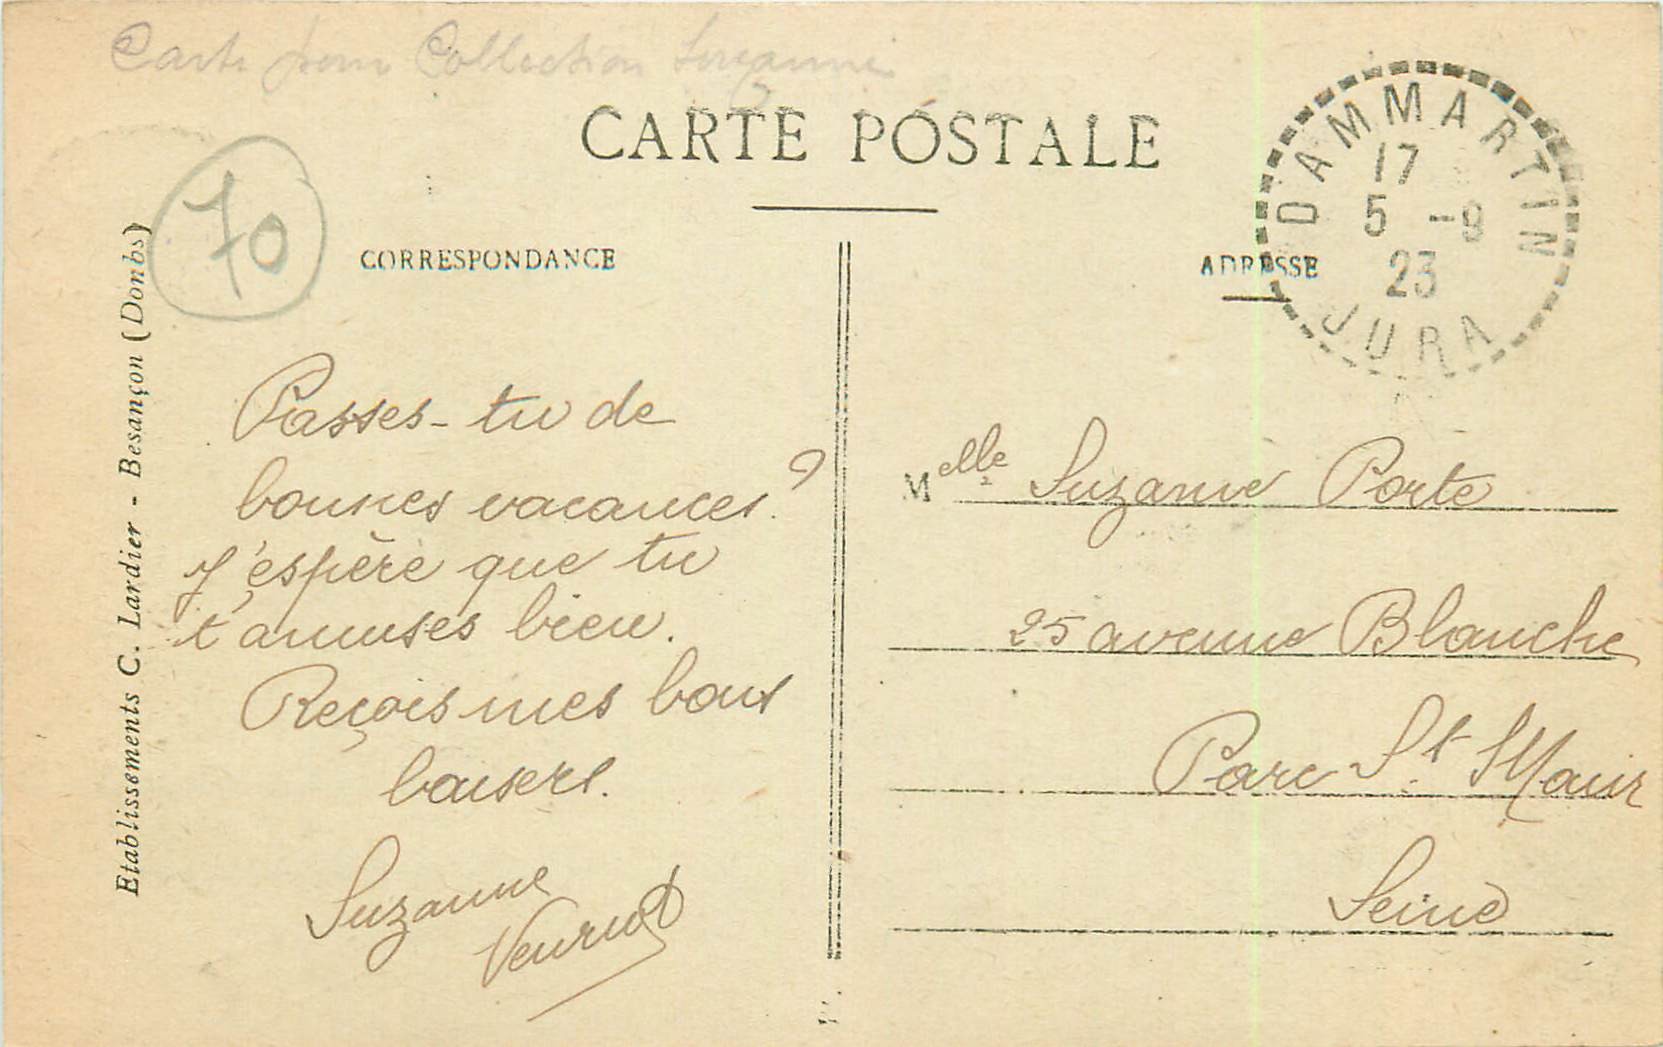 Carte pour Collection Suzanne
CARTE POSTALE
70
CORRESPONDANCE
ADRESSE
DAMMARTIN
17
5 -9
23
JURA
Etablissements C. Lardier - Besançon (Doubs)
Passes-tu de
bonnes vacances ?
J'espère que tu
t'amuses bien.
Reçois mes bons
baisers.
Suzanne
Melle Suzanne Porte
25 avenue Blanche
Parc St Maur
Seine